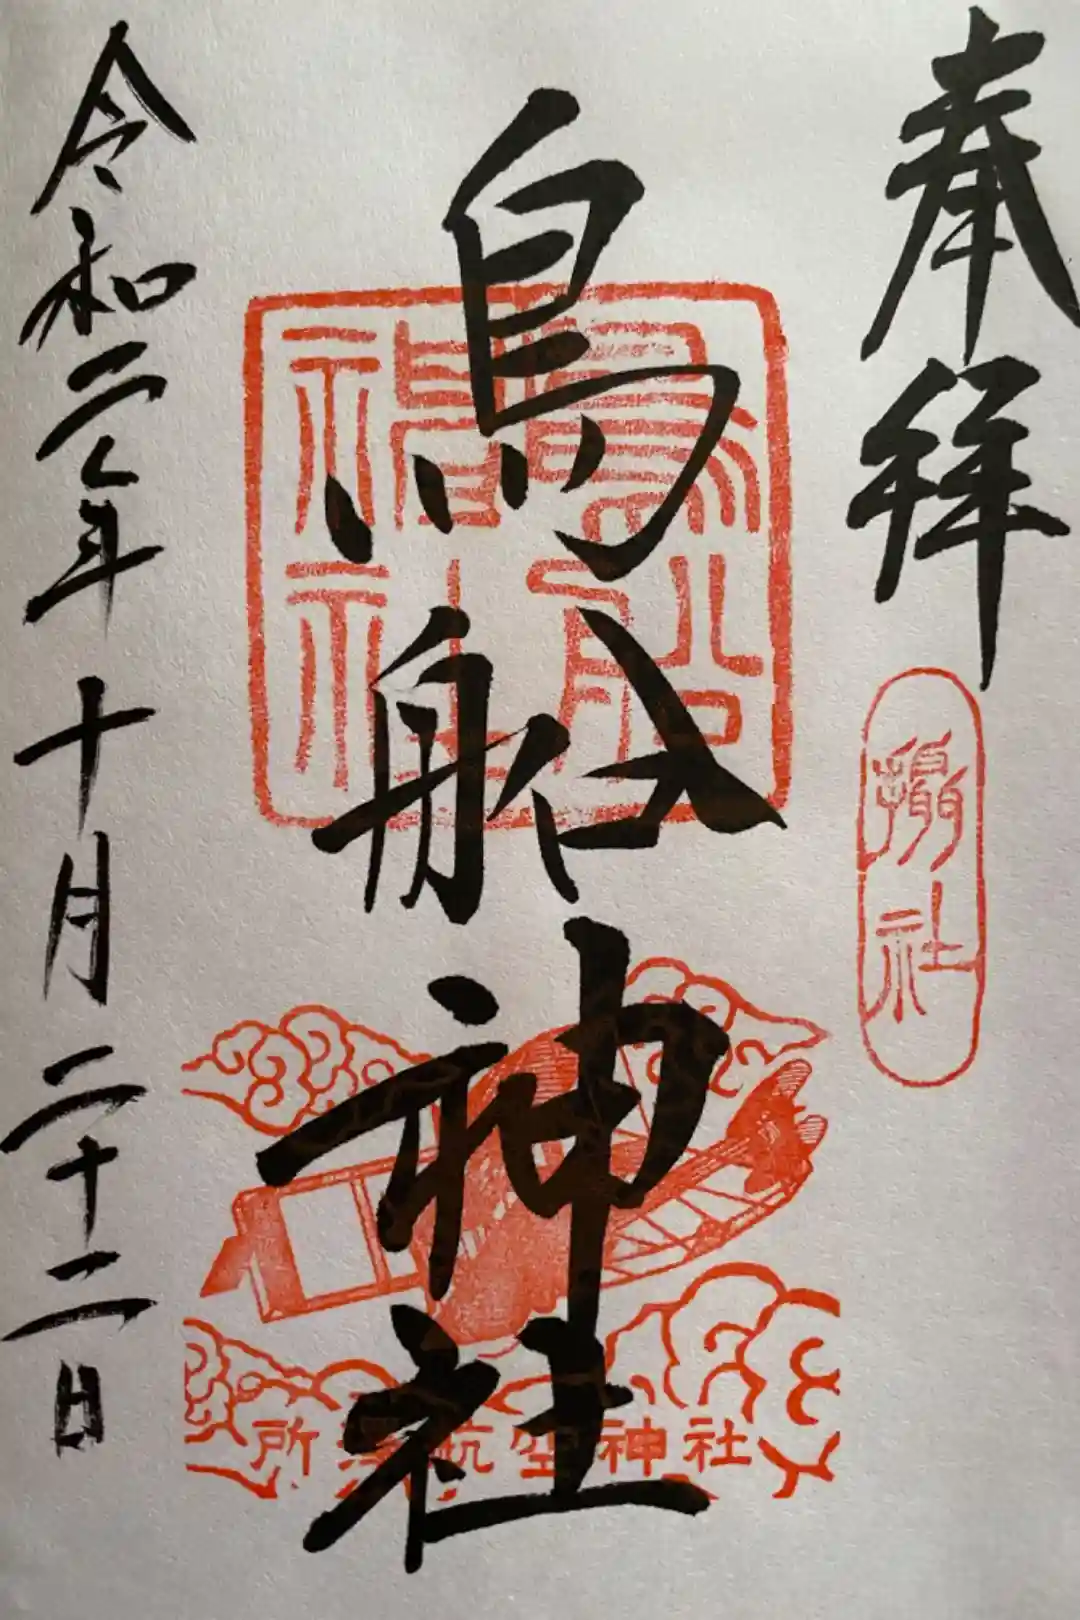 奉拝
鳥船神社
鳥船
神社
所澤航空神社
令和二年十月二十二日